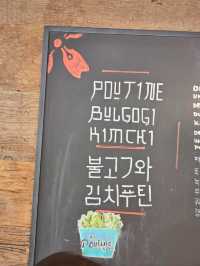 POUTINE
BULGOGI
KIMCHI
불고기와
김치푸틴
Poutine